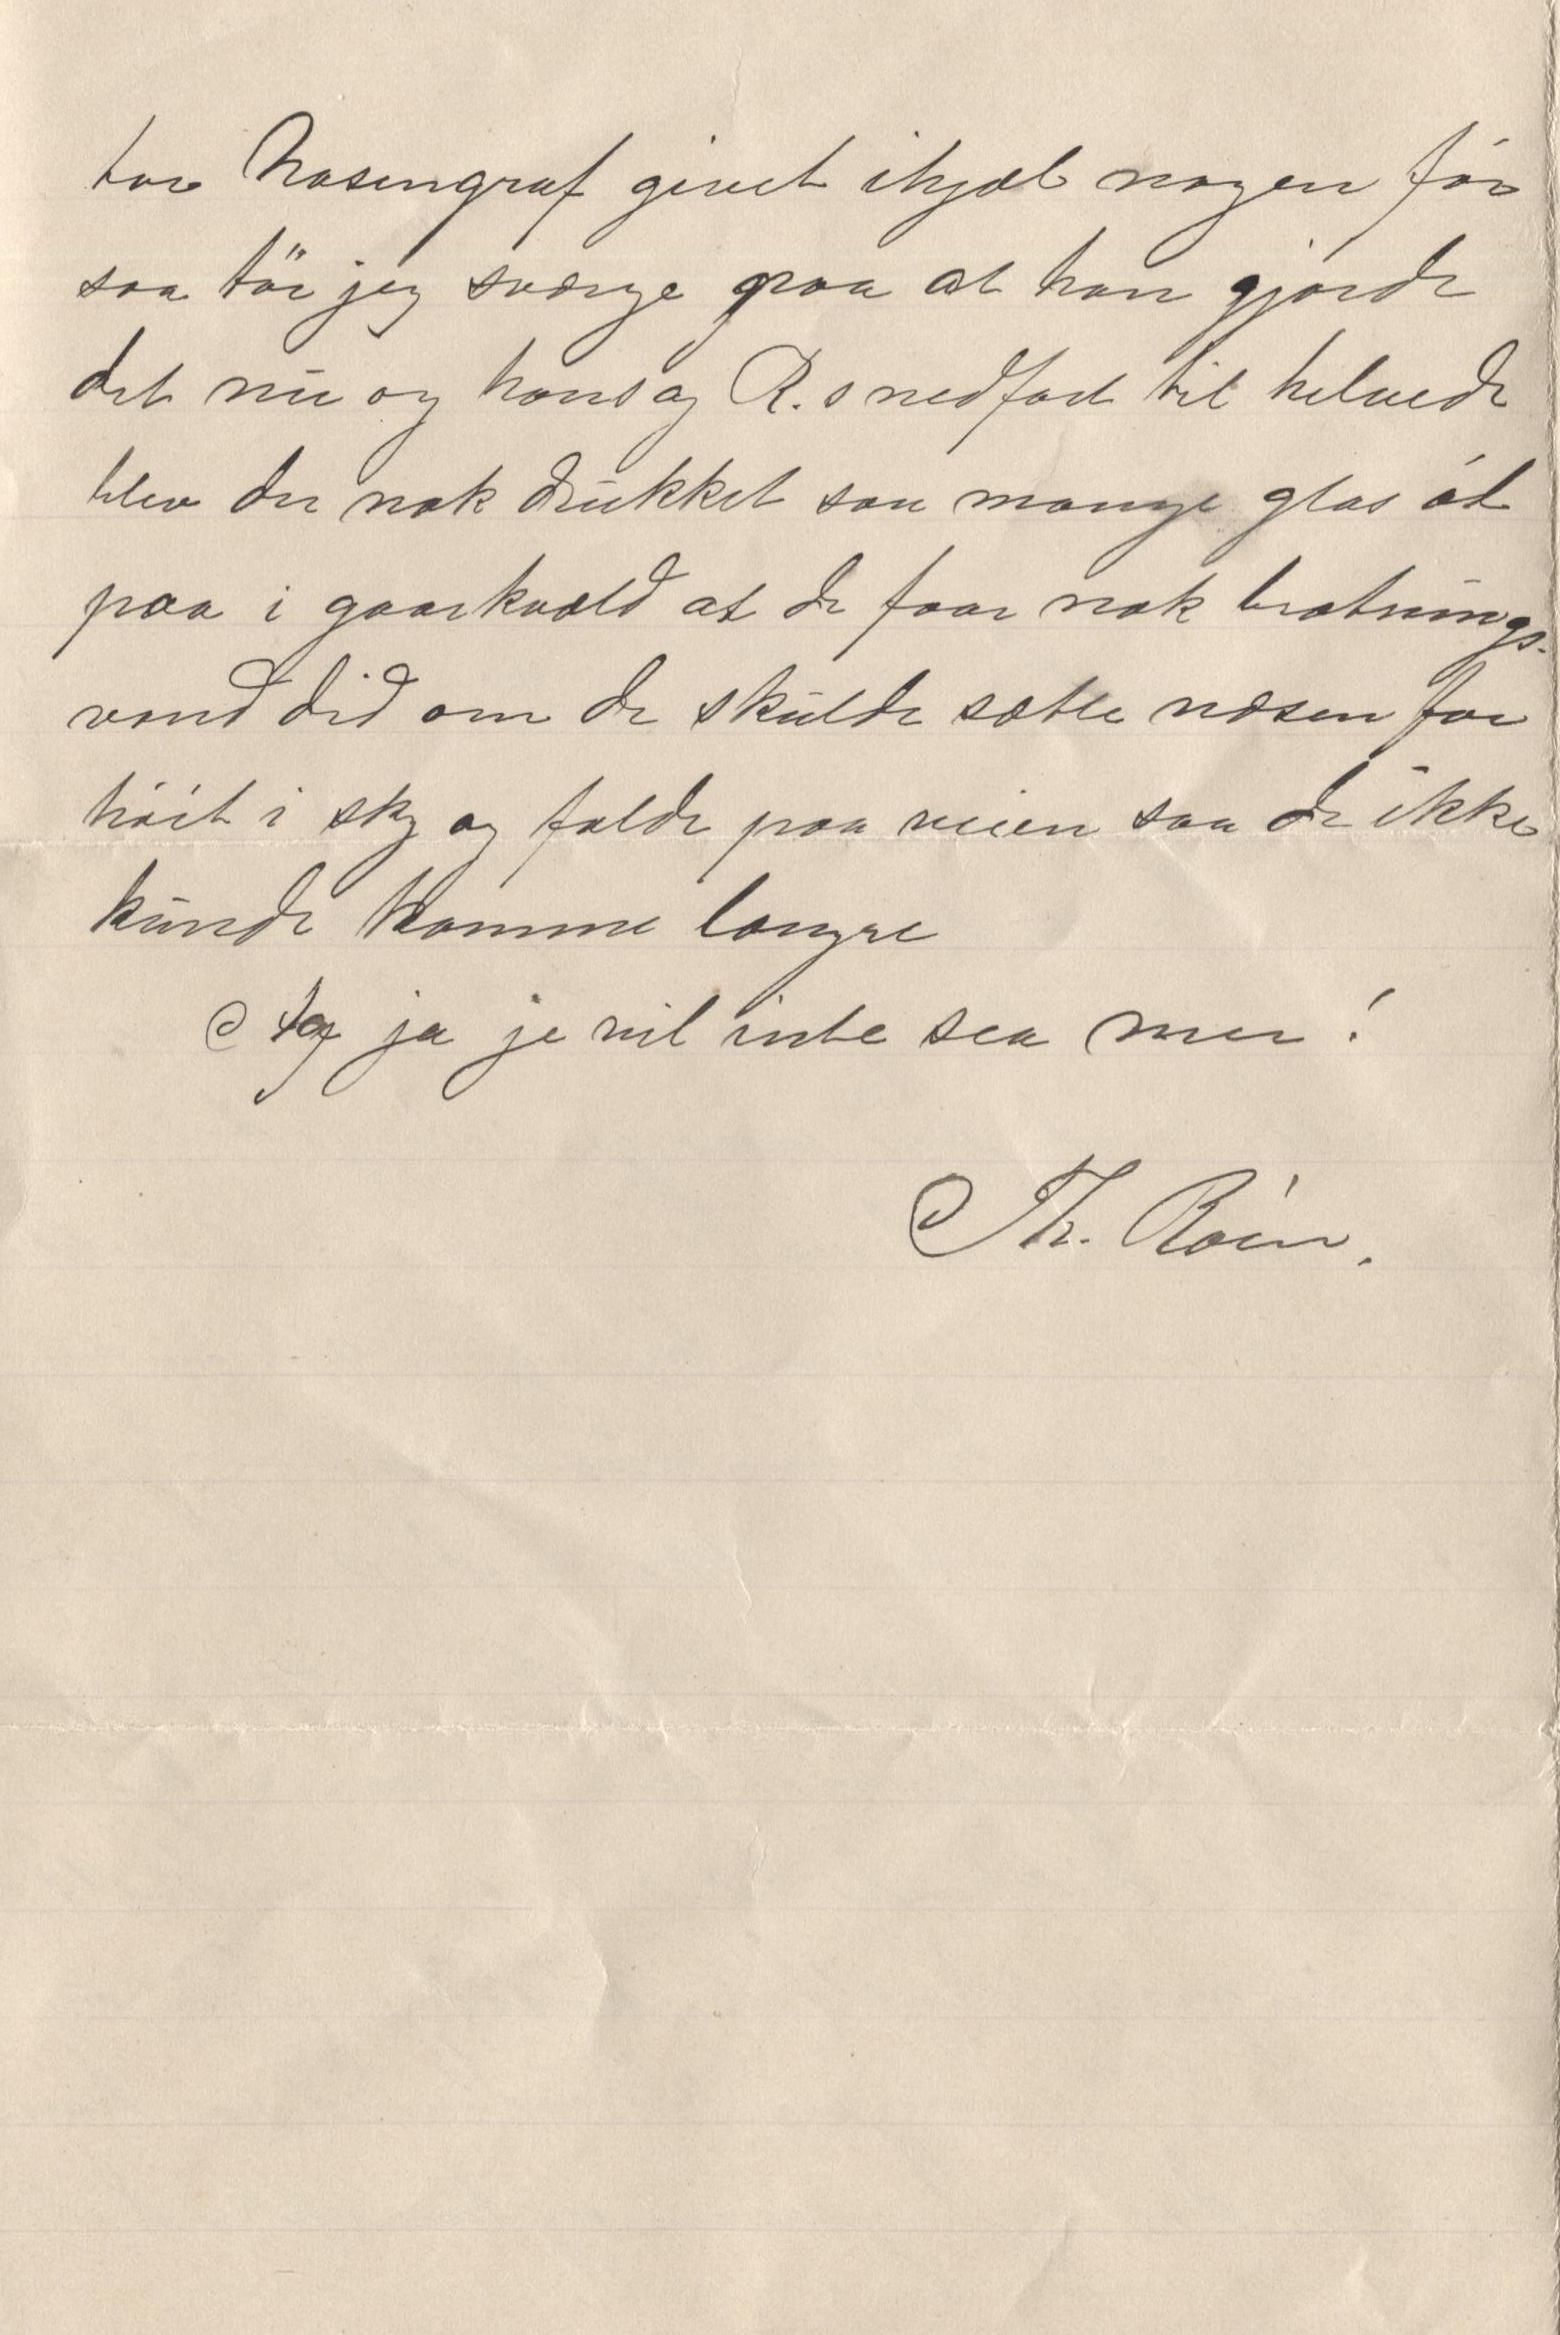 tor Rosengraf givet ihjæl nogen før
saa tör jeg sværge paa at han gjorde
det nu og hans og R.s nedfart til helvede
blev der nok drukket saa mange glas øl
paa i gaarkvæld at de faar nok brætnings-
vand did om de skulde sætte næsen for
høit i sky og falde paa veien saa de ikke
kunde komme længre
Jeg ja je vil inte sea mer!
Th. Röin.